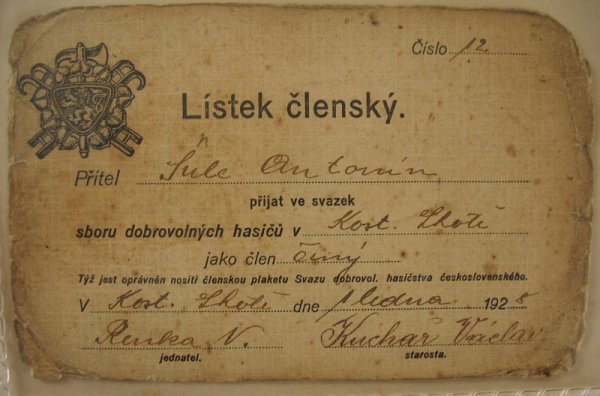 Číslo 12.
Lístek členský.
Přítel Šúle Antonín
přijat ve svazek
sboru dobrovolných hasičů v Kost. Lhotě
jako člen činný
Týž jest oprávněn nositi členskou plaketu Svazu dobrovol. hasičstva československého.
V Kost. Lhotě dne 1 ledna 1928
V. Kuchař Václav
jednatel. starosta.